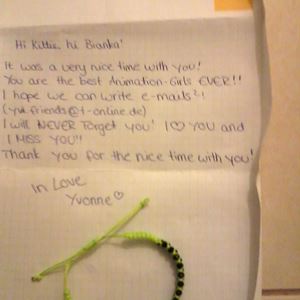 Hi Kittie, hi Bianka!
It was a very nice time with you!
You are the best Animation-Girls EVER!!
I hope we can write e-mails?!
friends@t-online.de)
I will NEVER forget you! I ♡ YOU and
I MISS YOU!!
Thank you for the nice time with you!
In Love
Yvonne ♡